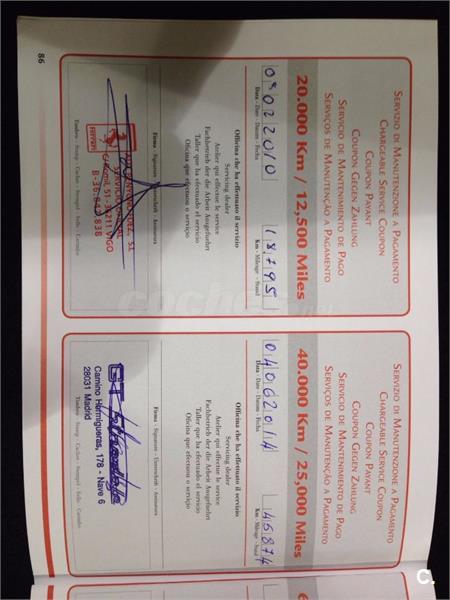 SERVIZIO DI MANUTENZIONE A PAGAMENTO
CHARGEABLE SERVICE COUPON
COUPON PAYANT
COUPON GEGEN ZAHLUNG
SERVICIO DE MANTENIMIENTO DE PAGO
SERVIÇOS DE MANUTENÇÃO A PAGAMENTO
20.000 Km / 12,500 Miles
09022010
18795
Data - Date - Datum - Fecha
Km - Mileage - Stand
Officina che ha effettuato il servizio
Servicing dealer
Atelier qui effectue le service
Fachbetrieb der die Arbeit Ausgefuehrt
Taller que ha efectuado el servicio
Oficina que efectuou o serviço
Firma - Signature - Unterschrift - Assinatura
C/ Romil, 51 - 36211 VIGO
Ferrari
Timbro - Stamp - Cachet - Stempel - Sello - Carimbo
86
SERVIZIO DI MANUTENZIONE A PAGAMENTO
CHARGEABLE SERVICE COUPON
COUPON PAYANT
COUPON GEGEN ZAHLUNG
SERVICIO DE MANTENIMIENTO DE PAGO
SERVIÇOS DE MANUTENÇÃO A PAGAMENTO
40.000 Km / 25,000 Miles
04062014
45874
Data - Date - Datum - Fecha
Km - Mileage - Stand
Officina che ha effettuato il servizio
Servicing dealer
Atelier qui effectue le service
Fachbetrieb der die Arbeit Ausgefuehrt
Taller que ha efectuado el servicio
Oficina que efectuou o serviço
Firma - Signature - Unterschrift - Assinatura
Camino Hormigueras, 178 - Nave 6
28031 Madrid
Timbro - Stamp - Cachet - Stempel - Sello - Carimbo
6
coches.net
C.